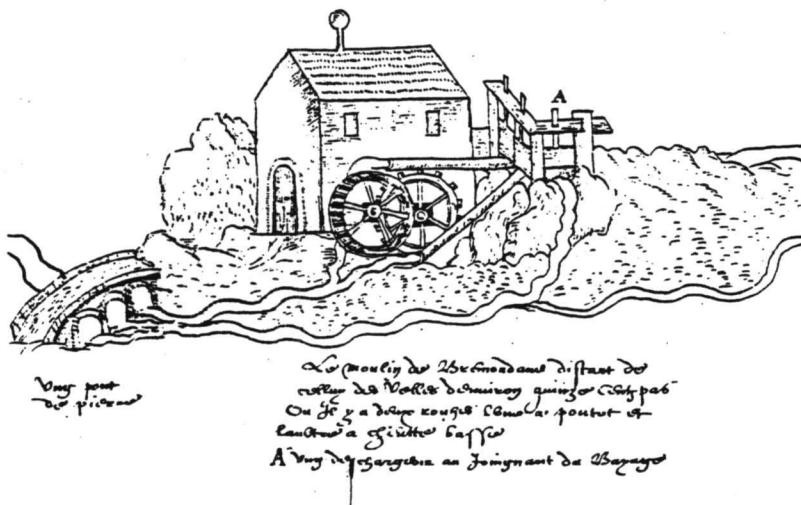 A
Ung pont
de pierre
Le moulin de Bremondans distant de
celluy des Velles denviron quinze cens pas
Ou Il y a deux rouhes lune a poutot et
laultre a chiutte basse
A ung deschargeoir au Joingnant du Bayage